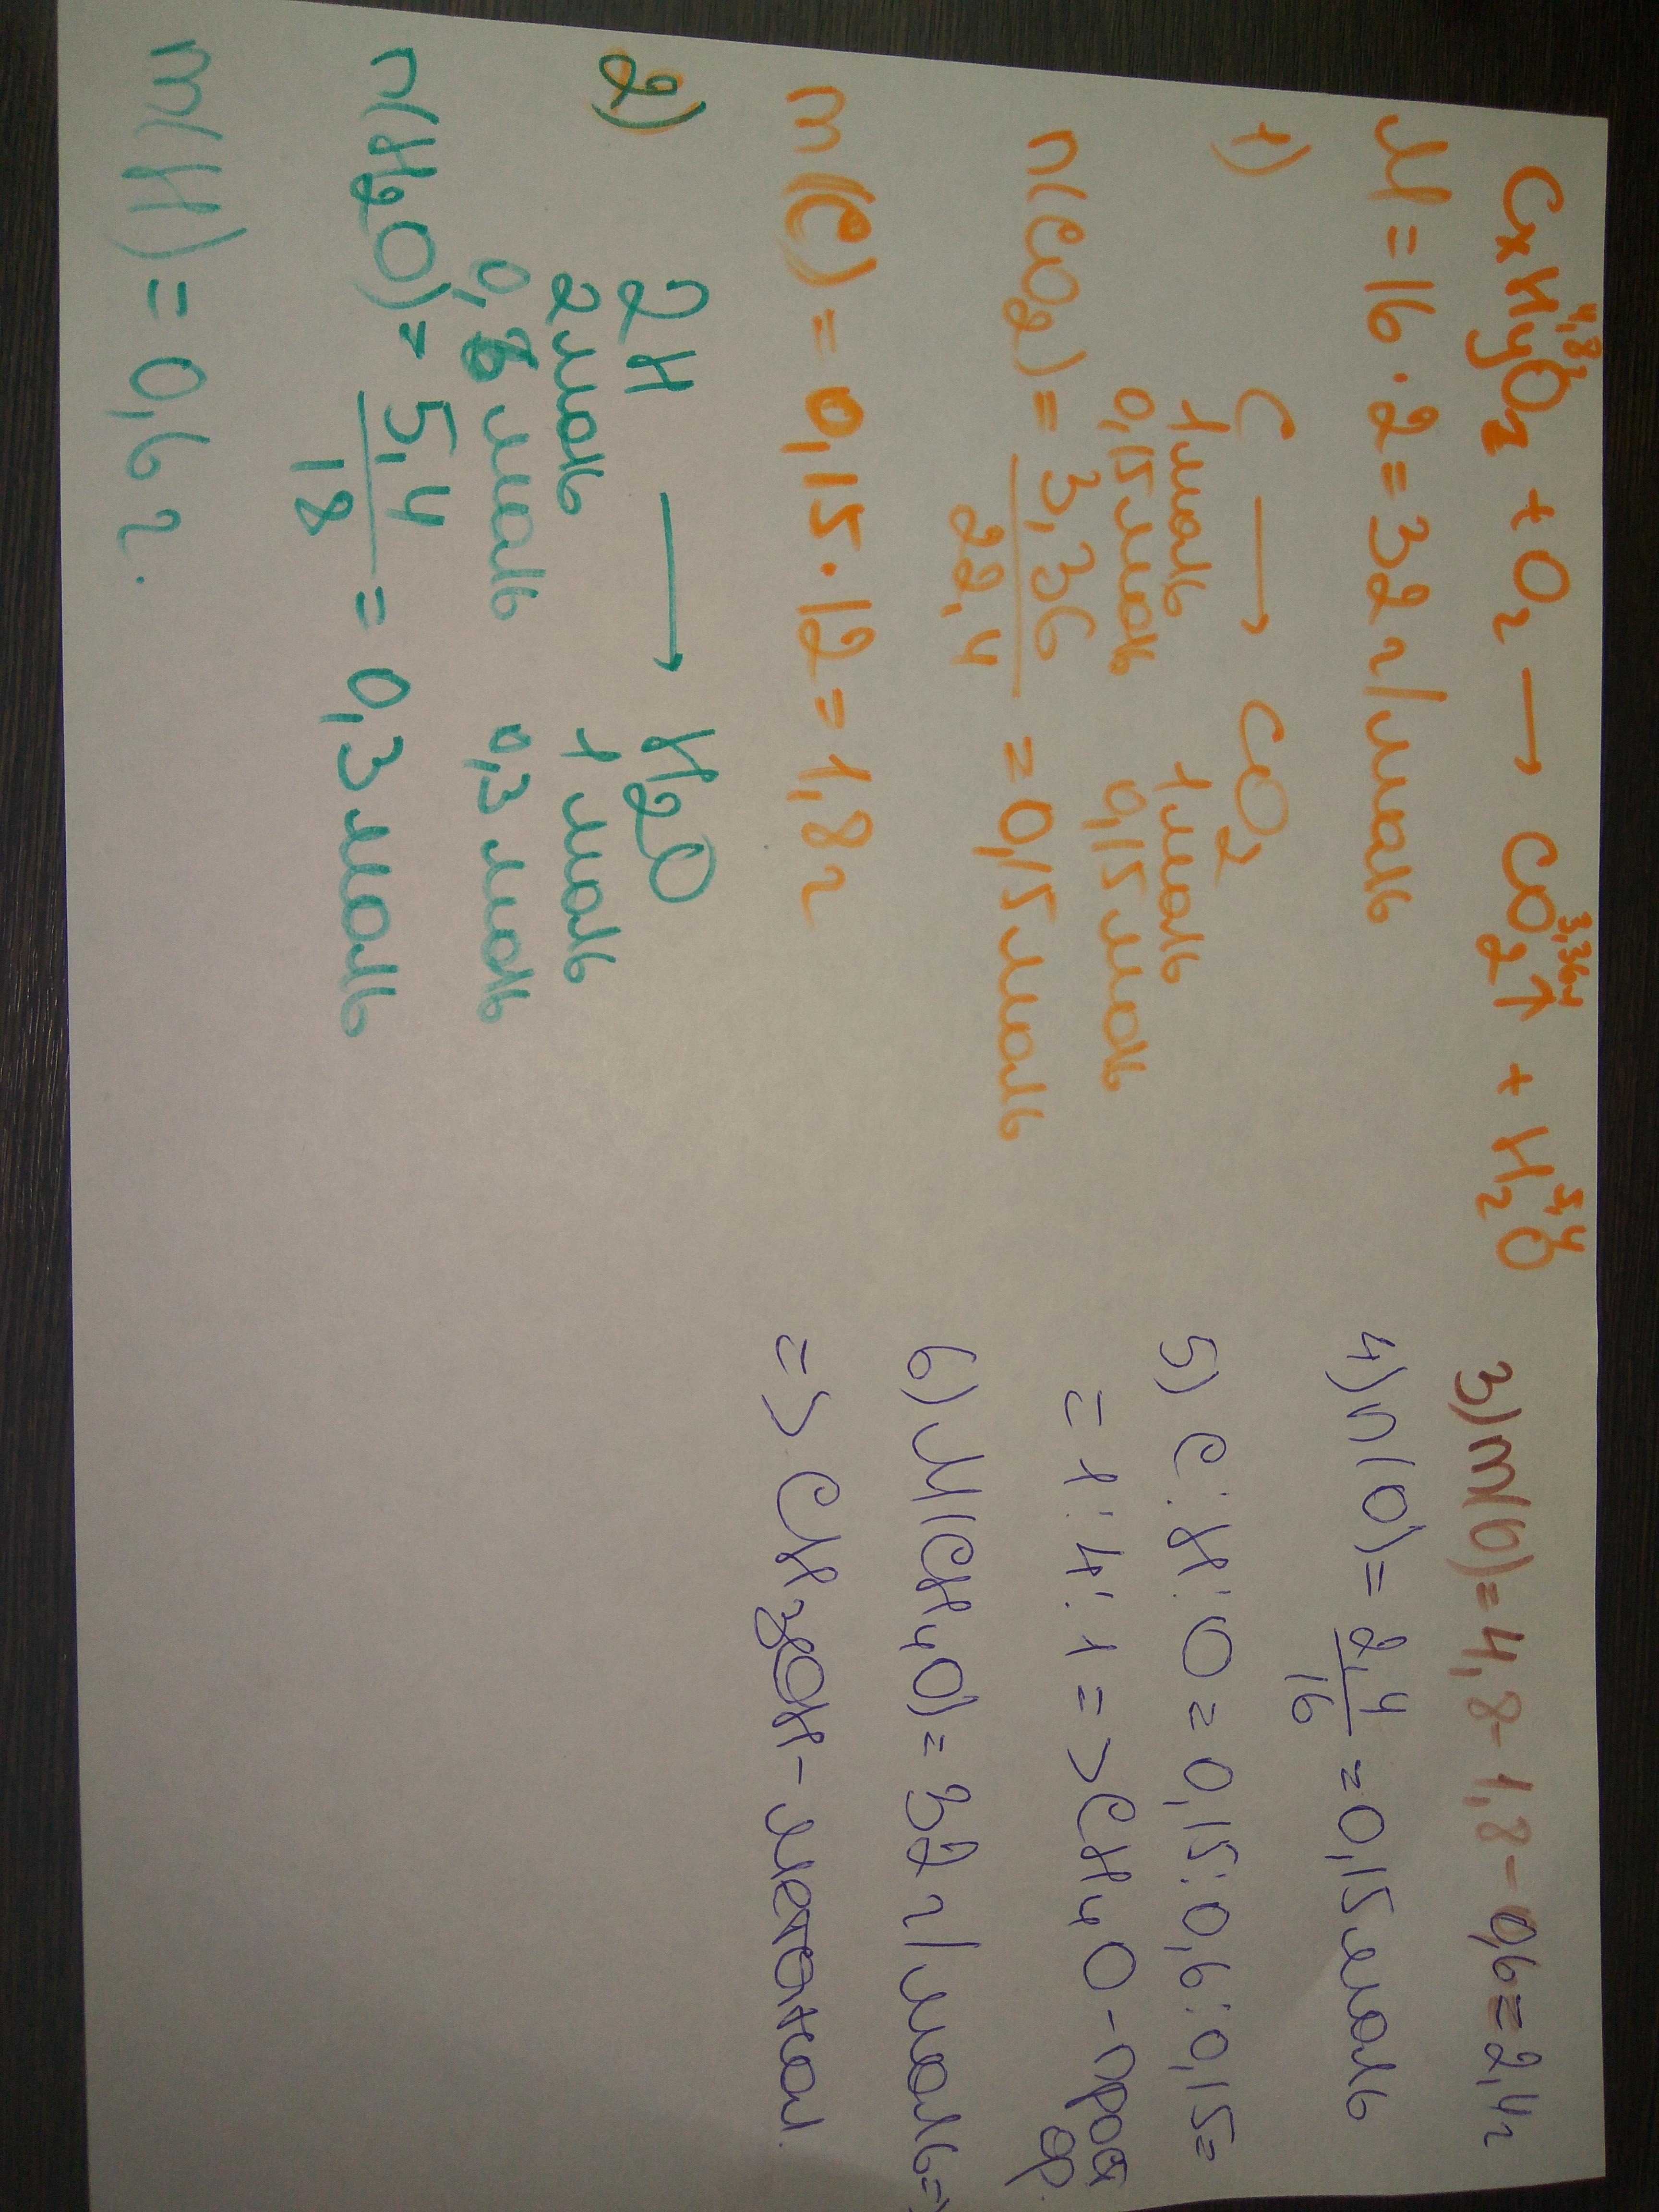 4,8г 3,36л 5,4
CxHyOz + O2 → CO2↑ + H2O
M = 16 · 2 = 32 г/моль
1) C → CO2
1моль 1моль
0,15моль 0,15моль
n(CO2) = 3,36/22,4 = 0,15моль
m(C) = 0,15·12 = 1,8г
2) 2H → H2O
2моль 1моль
0,6моль 0,3моль
n(H2O) = 5,4/18 = 0,3моль
m(H) = 0,6г.
3) m(O) = 4,8 - 1,8 - 0,6 = 2,4г
4) n(O) = 2,4/16 = 0,15моль
5) C:H:O = 0,15:0,6:0,15 =
= 1:4:1 => CH4O - прост
ф.
6) M(CH4O) = 32 г/моль =>
=> CH3OH - метанол.